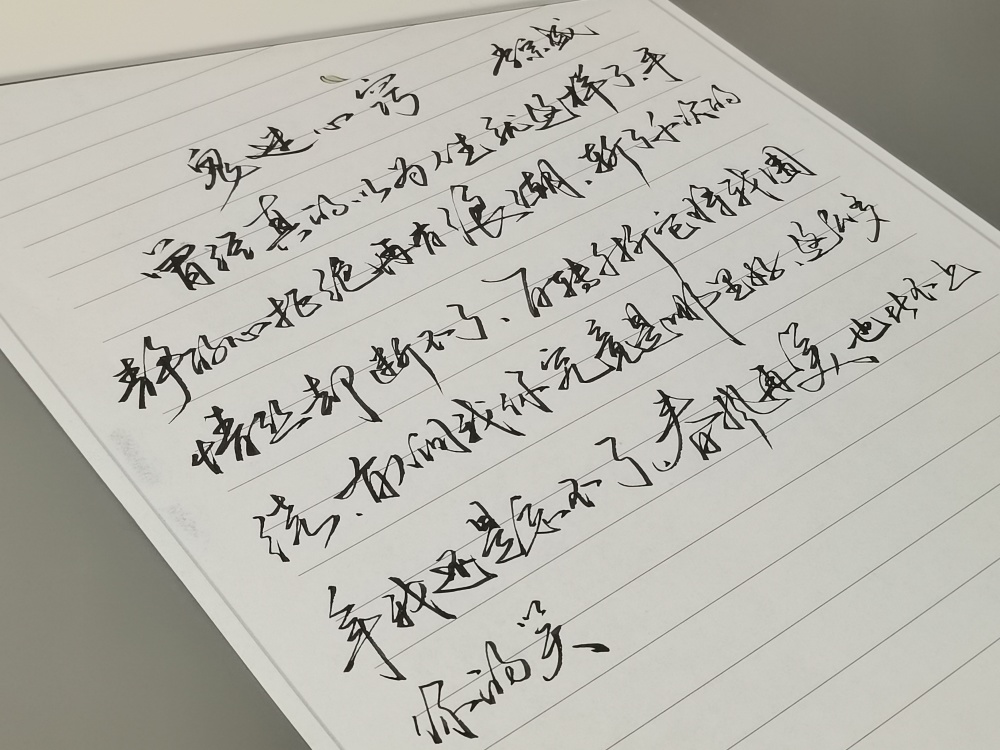 鬼迷心窍 李宗盛
曾经真的以为人生就这样了平
静的心拒绝再有浪潮、斩了千次的
情丝却断不了、百转千折它将我围
绕、有人问我你究竟是哪里好、这么多
年我还是忘不了、春风再美也比不上
你的笑